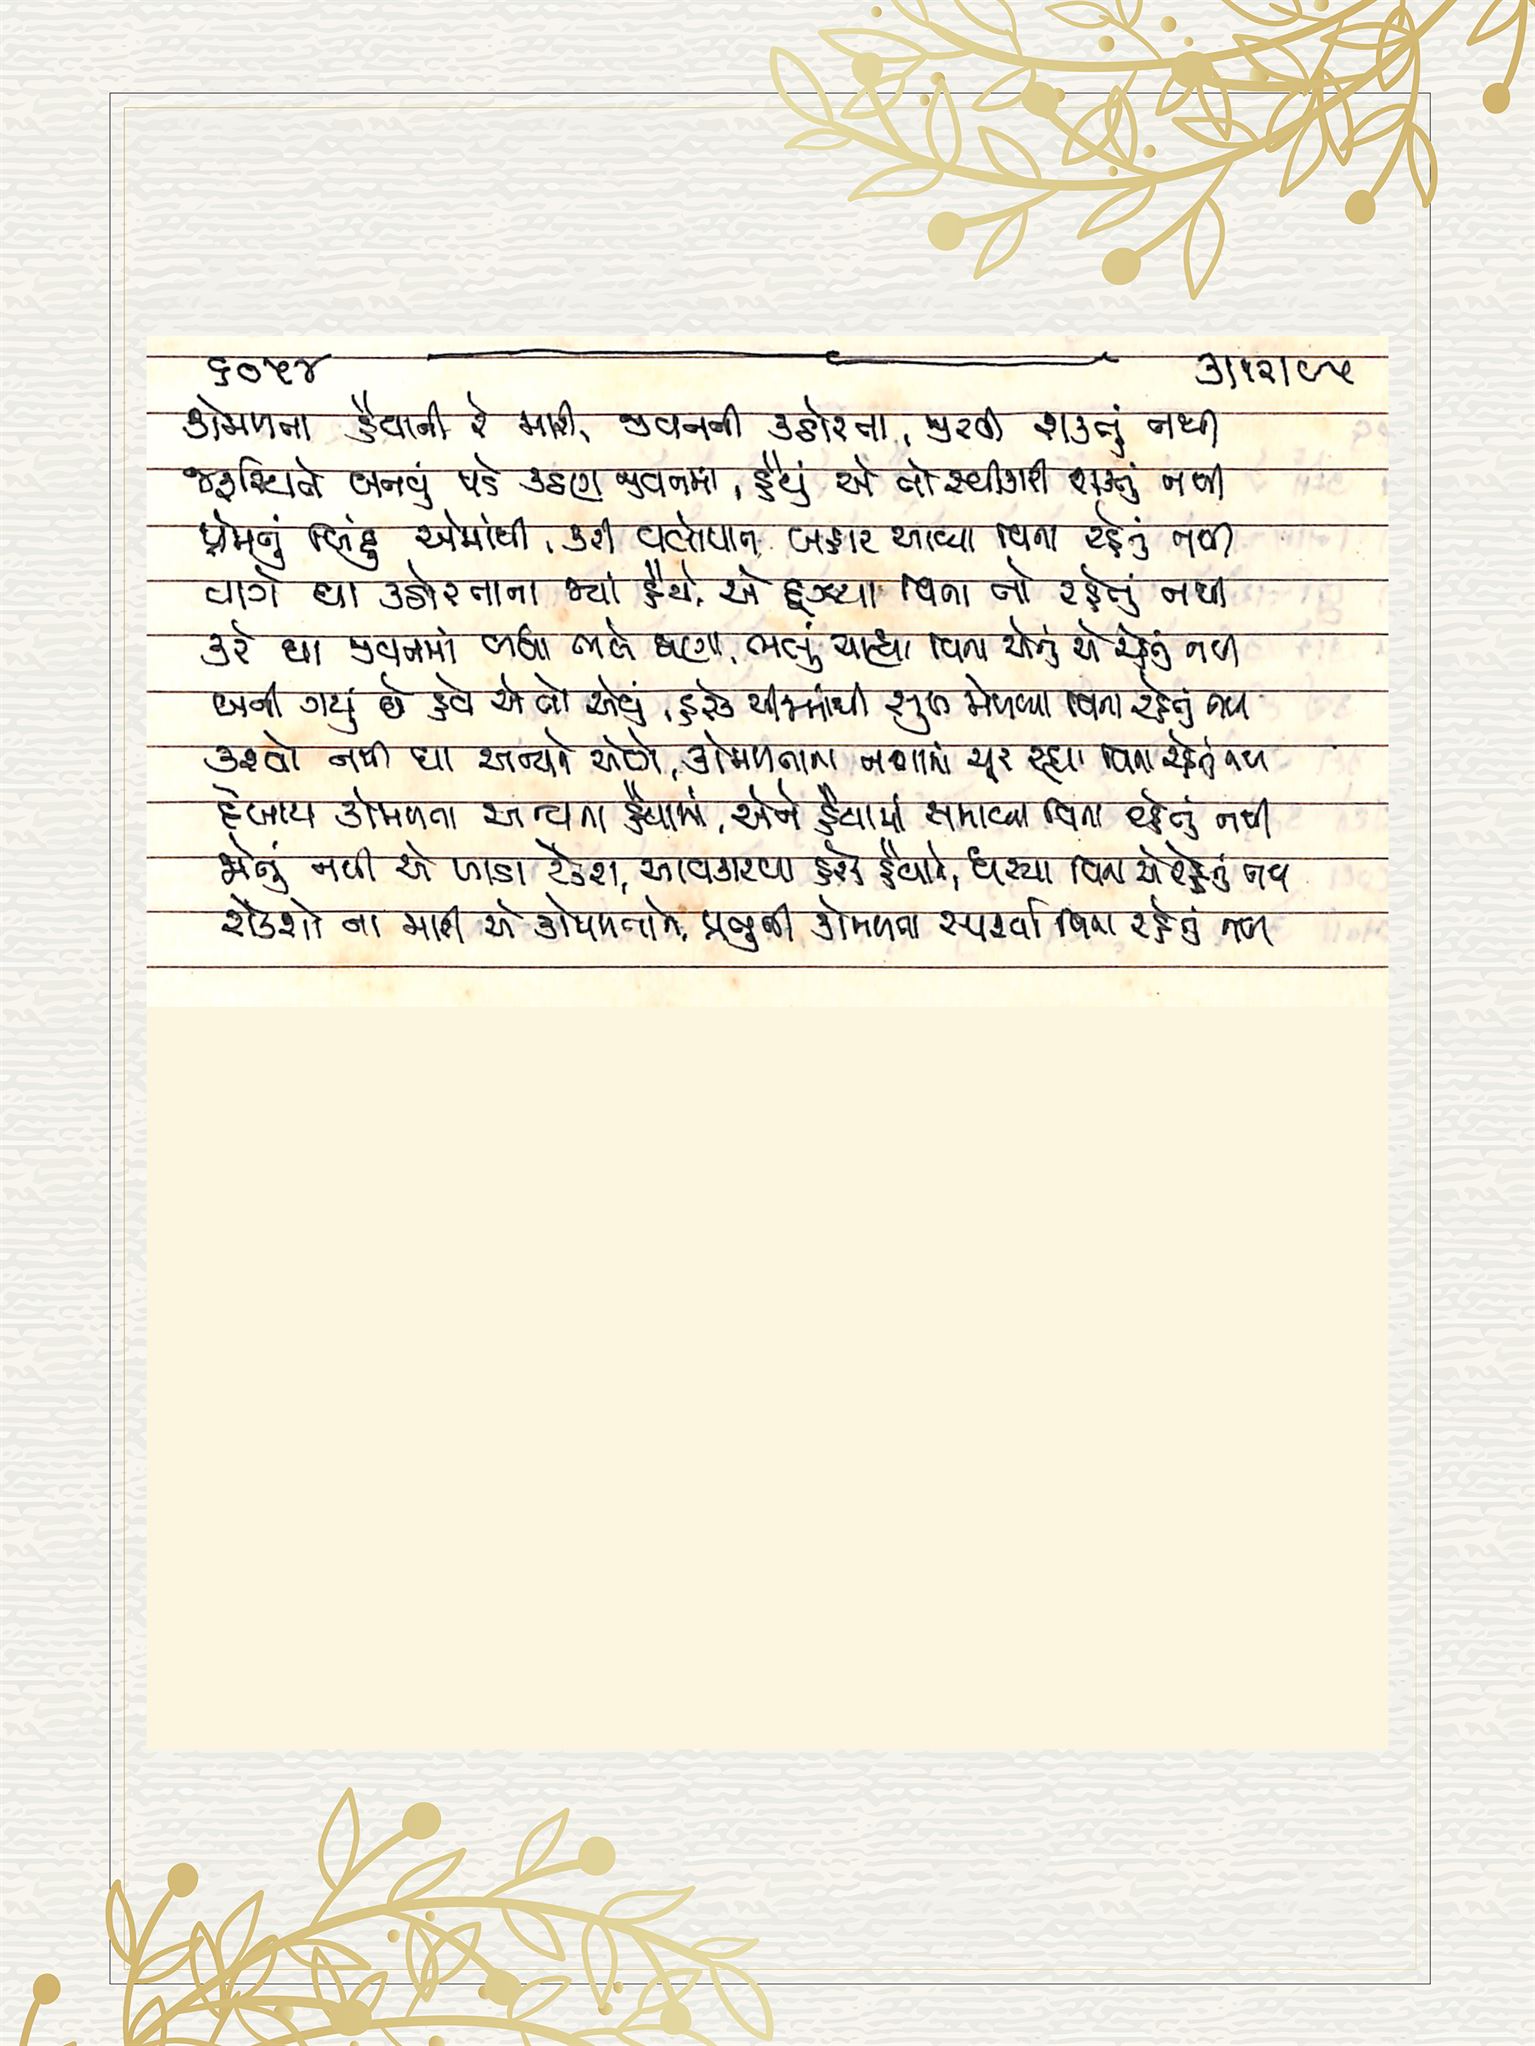 ૬૦૫૪ ૩/૧૨/૯૫
કોમળતા હૈયાની રે મારી, જીવનની કઠોરતા, જીરવી શકતું નથી
જરૂરિયાતે બનવું પડે કઠણ જીવનમાં, હૈયું એ તો સ્વીકારી શકતું નથી
પ્રેમનું બિંદુ એમાંથી, કરી વલોપાત, બહાર આવ્યા વિના રહેતું નથી
વાગે ઘા કઠોરતાના જ્યાં હૈયે, એ દૂઝ્યા વિના તો રહેતું નથી
કરે ઘા જીવનમાં બધા ભલે ઘણા, ભલું ચાહ્યા વિના એનું એ રહેતું નથી
બની ગયું છે હવે એ તો એવું, હરેક ચીજમાંથી સુખ મેળવ્યા વિના રહેતું નથી
કરવો નથી ઘા અન્યને એણે, કોમળતાના નશામાં ચૂર રહ્યા વિના રહેતું નથી
દેખાય કોમળતા અન્યના હૈયામાં, એને હૈયામાં સમાવ્યા વિના રહેતું નથી
જોતું નથી એ આડા રે, આવકારવા હરેક હૈયાને, ધસ્યા વિના એ રહેતું નથી
રોકશો ના મારી એ કોમળતાને, પ્રભુની કોમળતા સ્પર્શ્યા વિના રહેતું નથી